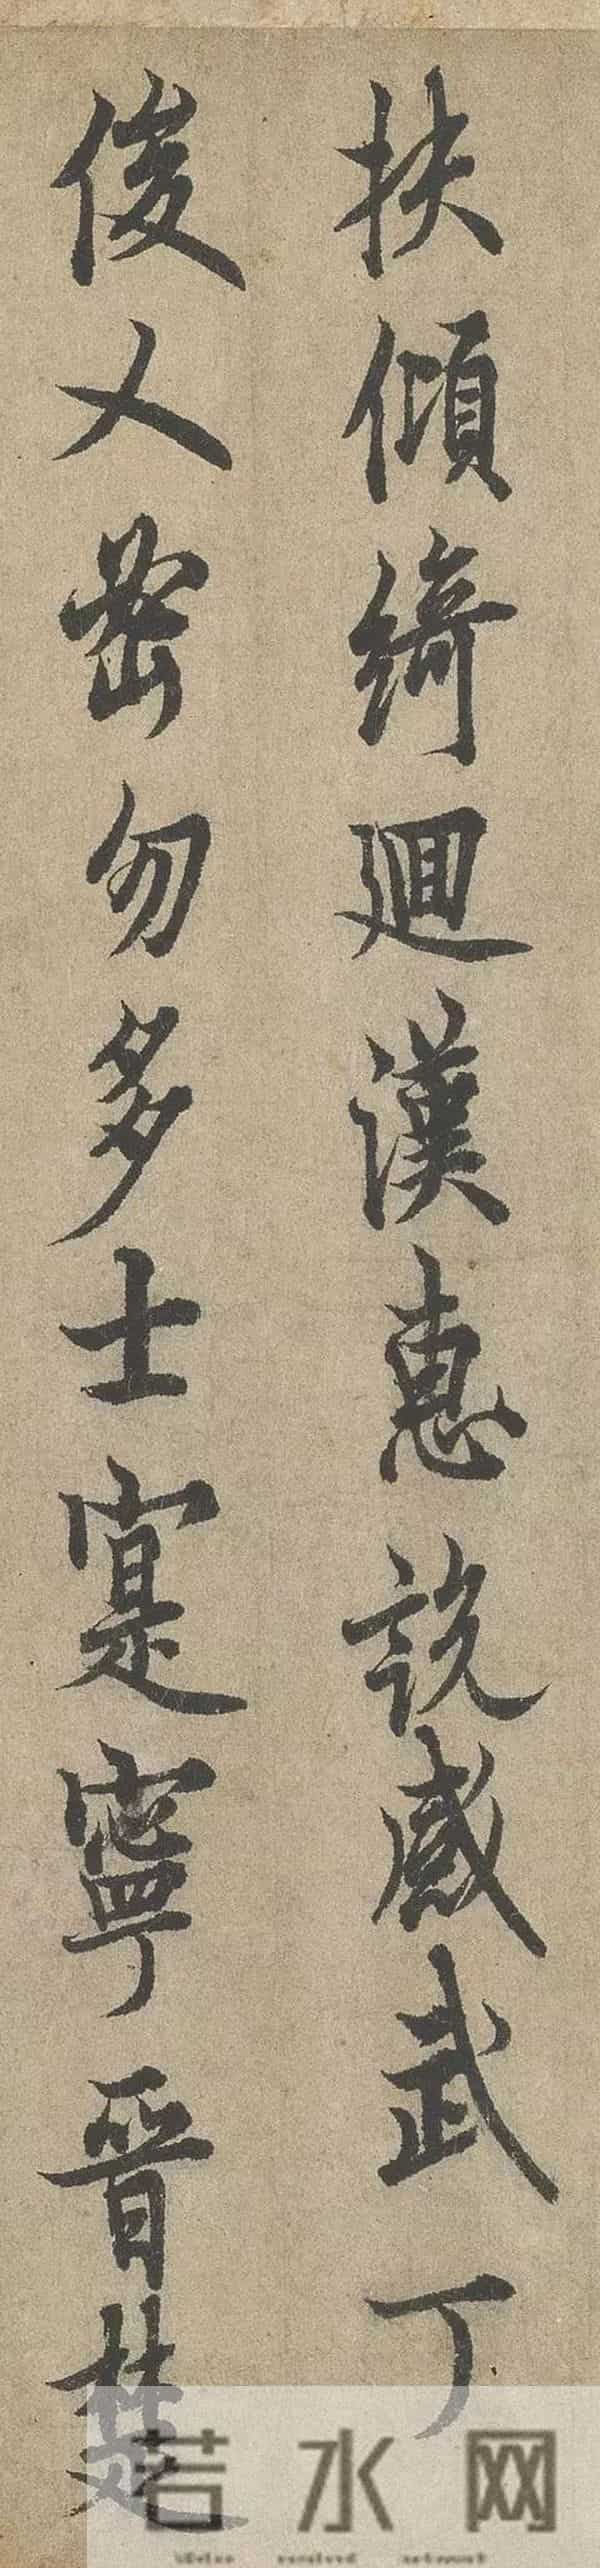 扶傾綺迴漢惠說感武丁
俊乂密勿多士寔寧晉楚
若水网